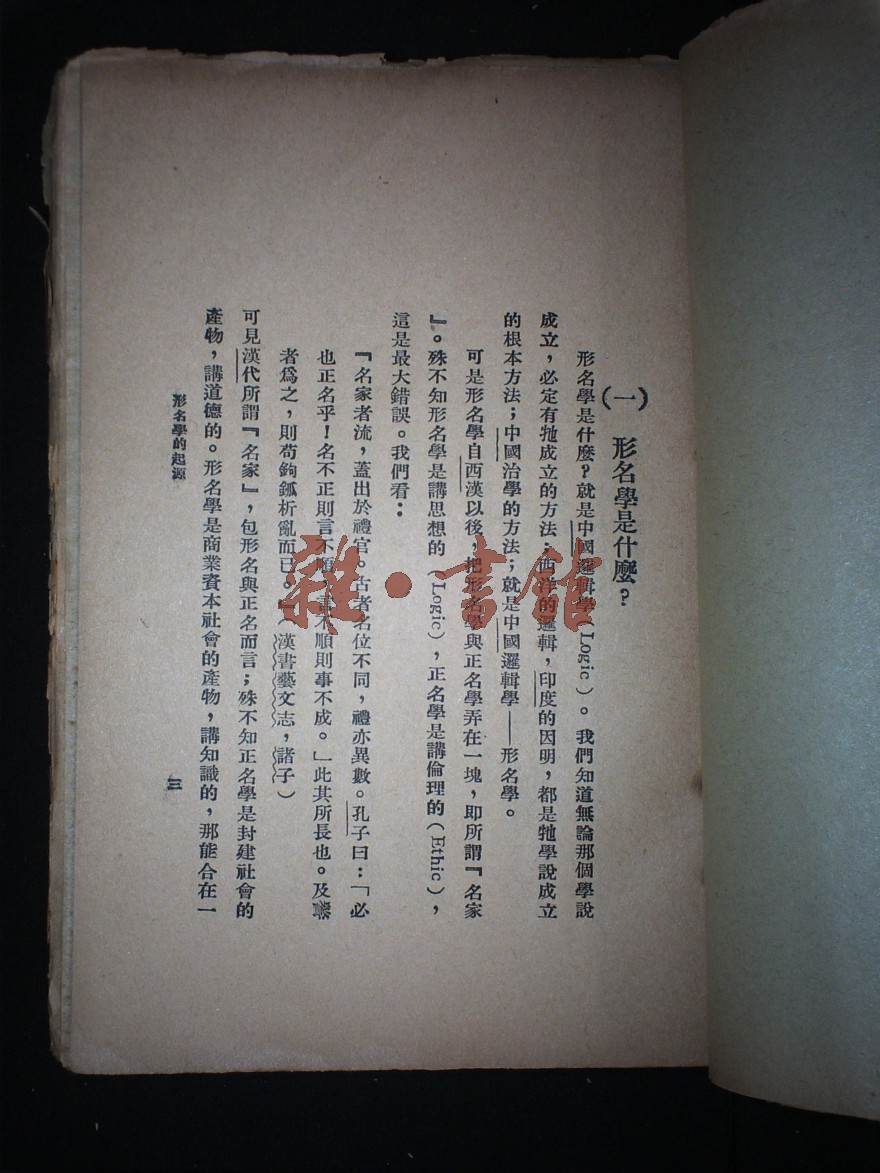 (一) 形名學是什麼？
形名學是什麼？就是中國邏輯學(Logic)。我們知道無論那個學說
成立，必定有牠成立的方法；西洋的邏輯，印度的因明，都是牠學說成立
的根本方法；中國治學的方法；就是中國邏輯學——形名學。
可是形名學自西漢以後，把形名學與正名學弄在一塊，即所謂『名家
』。殊不知形名學是講思想的(Logic)，正名學是講倫理的(Ethic)，
這是最大錯誤。我們看：
『名家者流，蓋出於禮官。古者名位不同，禮亦異數。孔子曰：「必
也正名乎！名不正則言不順，言不順則事不成。」此其所長也。及譥
者爲之，則苟鉤鈲析亂而已。』(漢書藝文志，諸子)
可見漢代所謂『名家』，包形名與正名而言；殊不知正名學是封建社會的
產物，講道德的。形名學是商業資本社會的產物，講知識的，那能合在一
形名學的起源
三
雜·書館